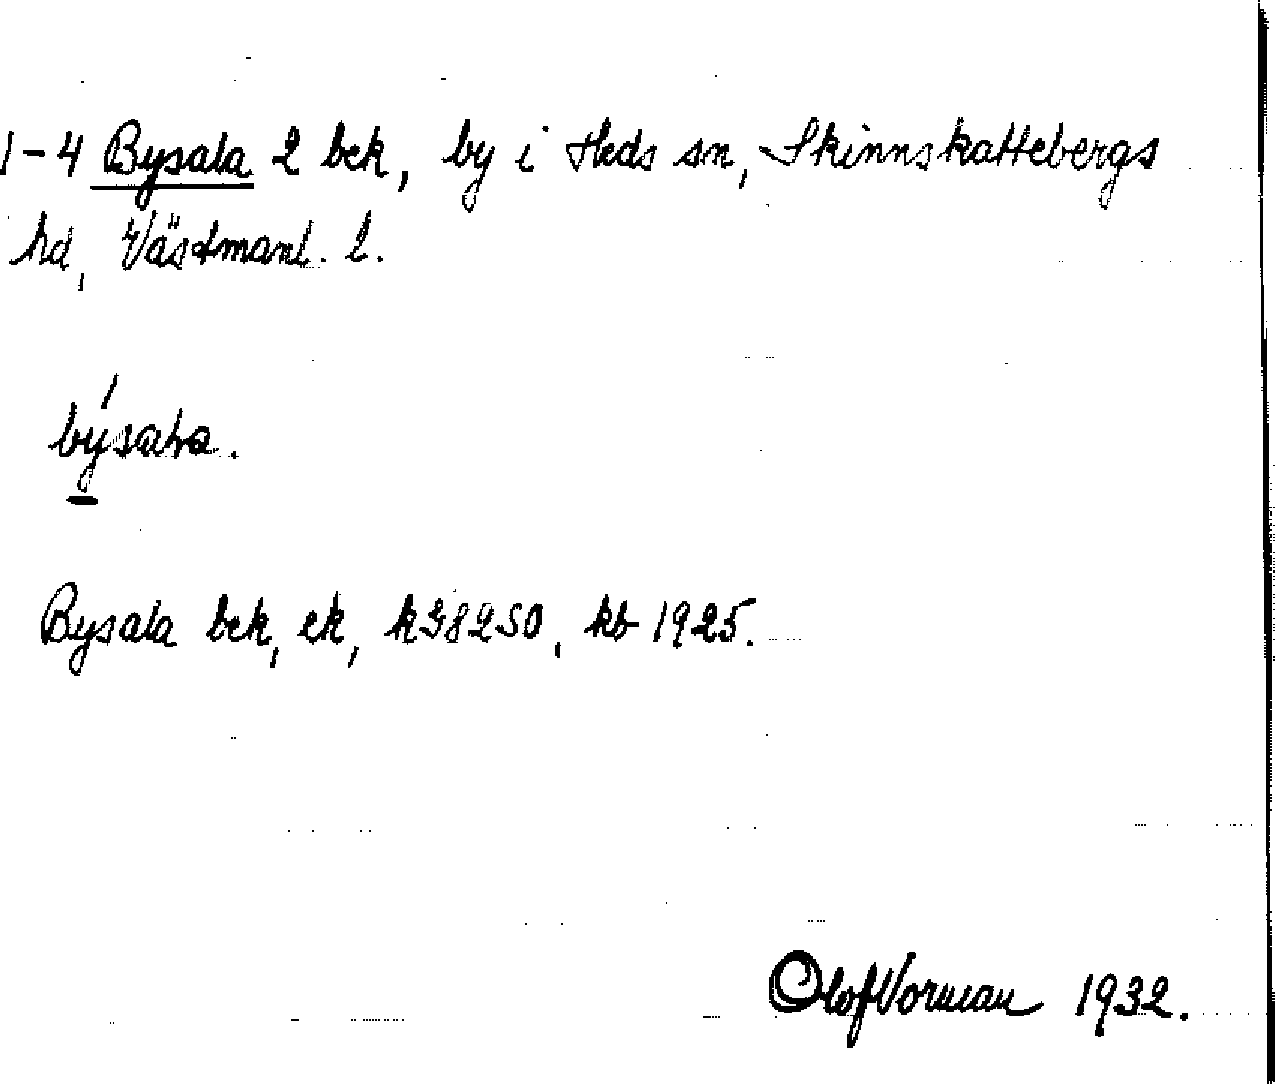 1-4 Bysala 2 bek, by i Heds sn, Skinnskattebergs
hd, Västmanl. l.
býsala.
Bysala bek, ek, k38250, kb 1925.
Olof Vorman 1932.